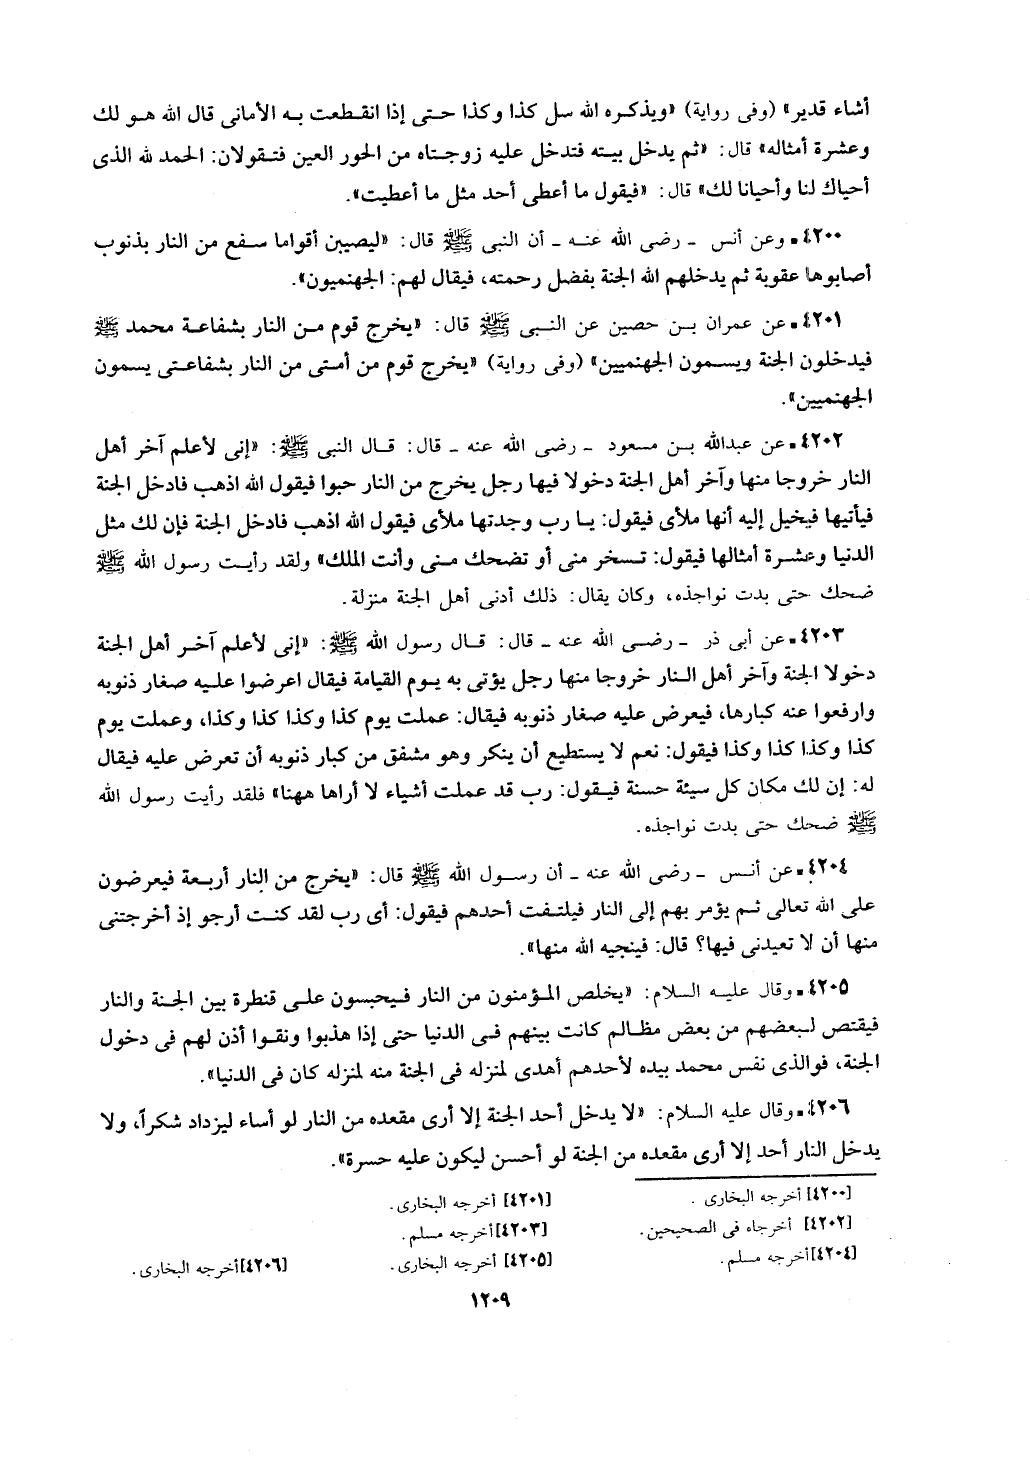 أشاء قدير» (وفى رواية) «ويذكره الله سل كذا وكذا حتى إذا انقطعت به الأمانى قال الله هو لك
وعشرة أمثاله» قال: «ثم يدخل بيته فتدخل عليه زوجتاه من الحور العين فتقولان: الحمد لله الذى
أحياك لنا وأحيانا لك» قال: «فيقول ما أعطى أحد مثل ما أعطيت».
٤٢٠٠ـ وعن أنس ـ رضى الله عنه ـ أن النبى ﷺ قال: «ليصيبن أقواما سفع من النار بذنوب
أصابوها عقوبة ثم يدخلهم الله الجنة بفضل رحمته، فيقال لهم: الجهنميون».
٤٢٠١ـ عن عمران بن حصين عن النبى ﷺ قال: «يخرج قوم من النار بشفاعة محمد ﷺ
فيدخلون الجنة ويسمون الجهنميين» (وفى رواية) «يخرج قوم من أمتى من النار بشفاعتى يسمون
الجهنميين».
٤٢٠٢ـ عن عبدالله بن مسعود ـ رضى الله عنه ـ قال: قال النبى ﷺ: «إنى لأعلم آخر أهل
النار خروجا منها وآخر أهل الجنة دخولا فيها رجل يخرج من النار حبوا فيقول الله اذهب فادخل الجنة
فيأتيها فيخيل إليه أنها ملأى فيقول: يا رب وجدتها ملأى فيقول الله اذهب فادخل الجنة فإن لك مثل
الدنيا وعشرة أمثالها فيقول: تسخر منى أو تضحك منى وأنت الملك» ولقد رأيت رسول الله ﷺ
ضحك حتى بدت نواجذه، وكان يقال: ذلك أدنى أهل الجنة منزلة.
٤٢٠٣ـ عن أبى ذر ـ رضى الله عنه ـ قال: قال رسول الله ﷺ: «إنى لأعلم آخر أهل الجنة
دخولا الجنة وآخر أهل النار خروجا منها رجل يؤتى به يوم القيامة فيقال اعرضوا عليه صغار ذنوبه
وارفعوا عنه كبارها، فيعرض عليه صغار ذنوبه فيقال: عملت يوم كذا وكذا كذا وكذا، وعملت يوم
كذا وكذا كذا وكذا فيقول: نعم لا يستطيع أن ينكر وهو مشفق من كبار ذنوبه أن تعرض عليه فيقال
له: إن لك مكان كل سيئة حسنة فيقول: رب قد عملت أشياء لا أراها ههنا» فلقد رأيت رسول الله
ﷺ ضحك حتى بدت نواجذه.
٤٢٠٤ـ عن أنس ـ رضى الله عنه ـ أن رسول الله ﷺ قال: «يخرج من النار أربعة فيعرضون
على الله تعالى ثم يؤمر بهم إلى النار فيلتفت أحدهم فيقول: أى رب لقد كنت أرجو إذ أخرجتنى
منها أن لا تعيدنى فيها؟ قال: فينجيه الله منها».
٤٢٠٥ـ وقال عليه السلام: «يخلص المؤمنون من النار فيحبسون على قنطرة بين الجنة والنار
فيقتص لبعضهم من بعض مظالم كانت بينهم فى الدنيا حتى إذا هذبوا ونقوا أذن لهم فى دخول
الجنة، فوالذى نفس محمد بيده لأحدهم أهدى لمنزله فى الجنة منه لمنزله كان فى الدنيا».
٤٢٠٦ـ وقال عليه السلام: «لا يدخل أحد الجنة إلا أرى مقعده من النار لو أساء ليزداد شكراً، ولا
يدخل النار أحد إلا أرى مقعده من الجنة لو أحسن ليكون عليه حسرة».
[٤٢٠٠] أخرجه البخارى. [٤٢٠١] أخرجه البخارى.
[٤٢٠٢] أخرجاه فى الصحيحين. [٤٢٠٣] أخرجه مسلم.
[٤٢٠٤] أخرجه مسلم. [٤٢٠٥] أخرجه البخارى. [٤٢٠٦] أخرجه البخارى.
١٢٠٩